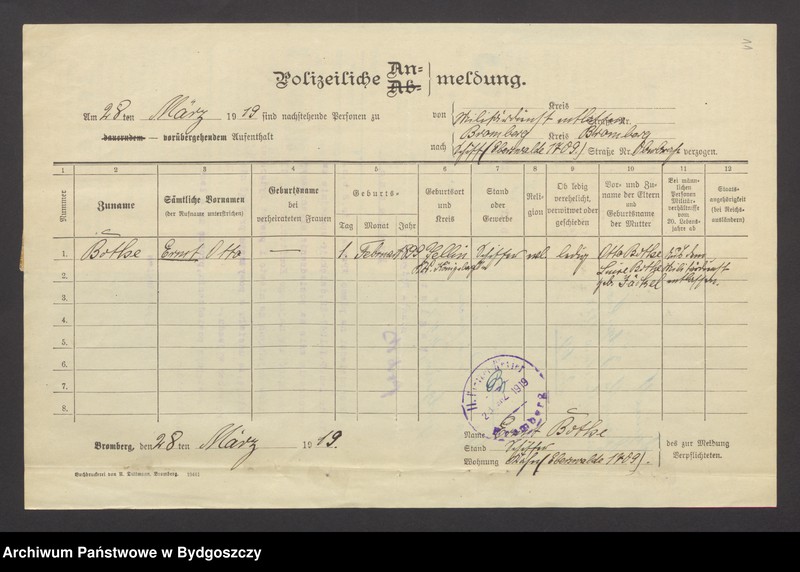 11
Polizeiliche An=
Ab= meldung.
Am 28 ten März 1919 sind nachstehende Personen zu
dauerndem — vorübergehendem Aufenthalt
von Kreis
Militärdienst entlassen
Bromberg Kreis Bromberg
nach Schiff (Oberwalde 1409.) Straße Nr. verzogen.
1 2 3 4 5 6 7 8 9 10 11 12
Nummer
Zuname
Sämtliche Vornamen
(der Rufname unterstrichen)
Geburtsname
bei
verheirateten Frauen
Geburts-
Tag Monat Jahr
Geburtsort
und
Kreis
Stand
oder
Gewerbe
Reli-
gion
Ob ledig
verehelicht,
verwitwet oder
geschieden
Vor- und Zu-
name der Eltern
und
Geburtsname
der Mutter
Bei männ-
lichen
Personen
Militär-
verhältnisse
vom
20. Lebens-
jahre ab
Staats-
angehörigkeit
(bei Reichs-
ausländern)
1. Bothe Ernst Otto — 1. Februar Zellin Schiffer evl. ledig Otto Bothe Aus dem
Kr. Königsberg Bothe Militärdienst
2. geb. Jäckel entlassen.
3.
4.
5.
6.
7.
8.
1919
Bromberg
Bromberg, den 28 ten März 1919.
Name Ernst Bothe
Stand Schiffer
Wohnung Kahn (Oberwalde 1409).
des zur Meldung
Verpflichteten.
Buchdruckerei von A. Dittmann, Bromberg.
Archiwum Państwowe w Bydgoszczy